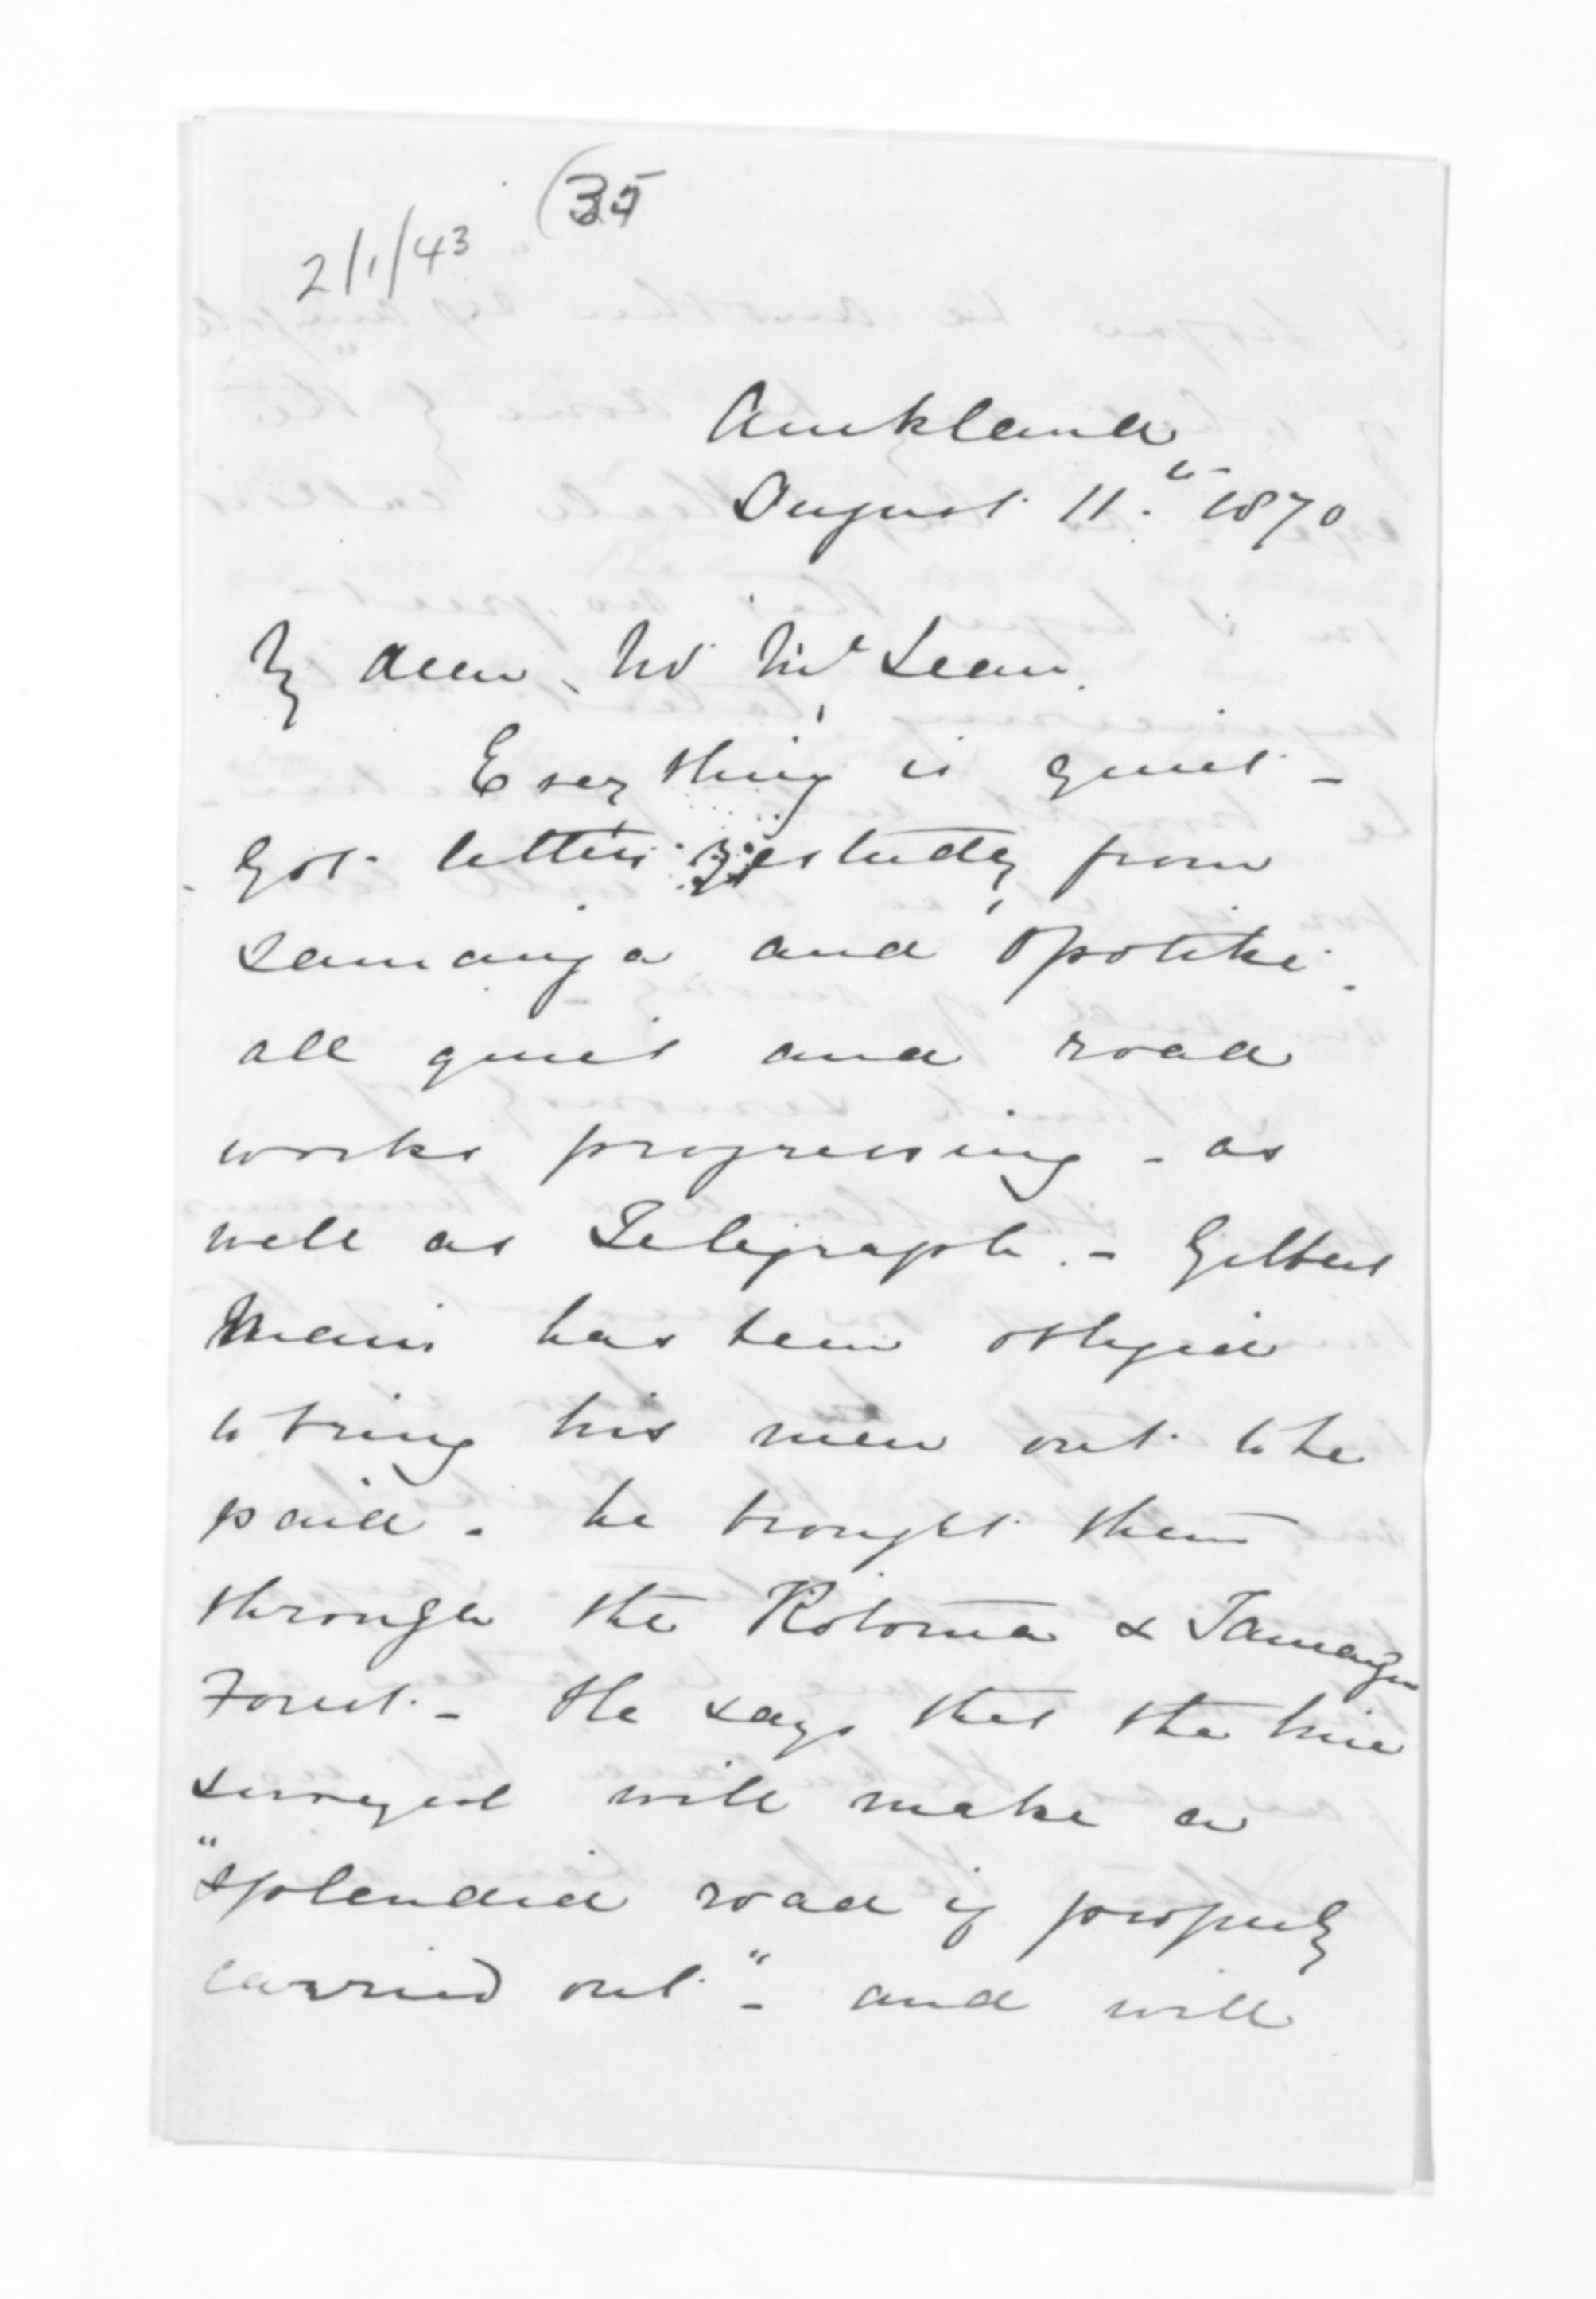 2/1/43 (35
Auckland
August 11.th 1870
My dear Mr McLean
Everything is quiet -
Got letters yesterday from
Tauranga and Opotiki -
all quiet and road
works progressing - as
well as Telegraph. - Gilbert
Mair has been obliged
to bring his men out to be
paid - he brought them
through the Rotoma & Tauranga
Forest - He says that the line
surveyed will make a
"splendid road if properly
carried out" - and will